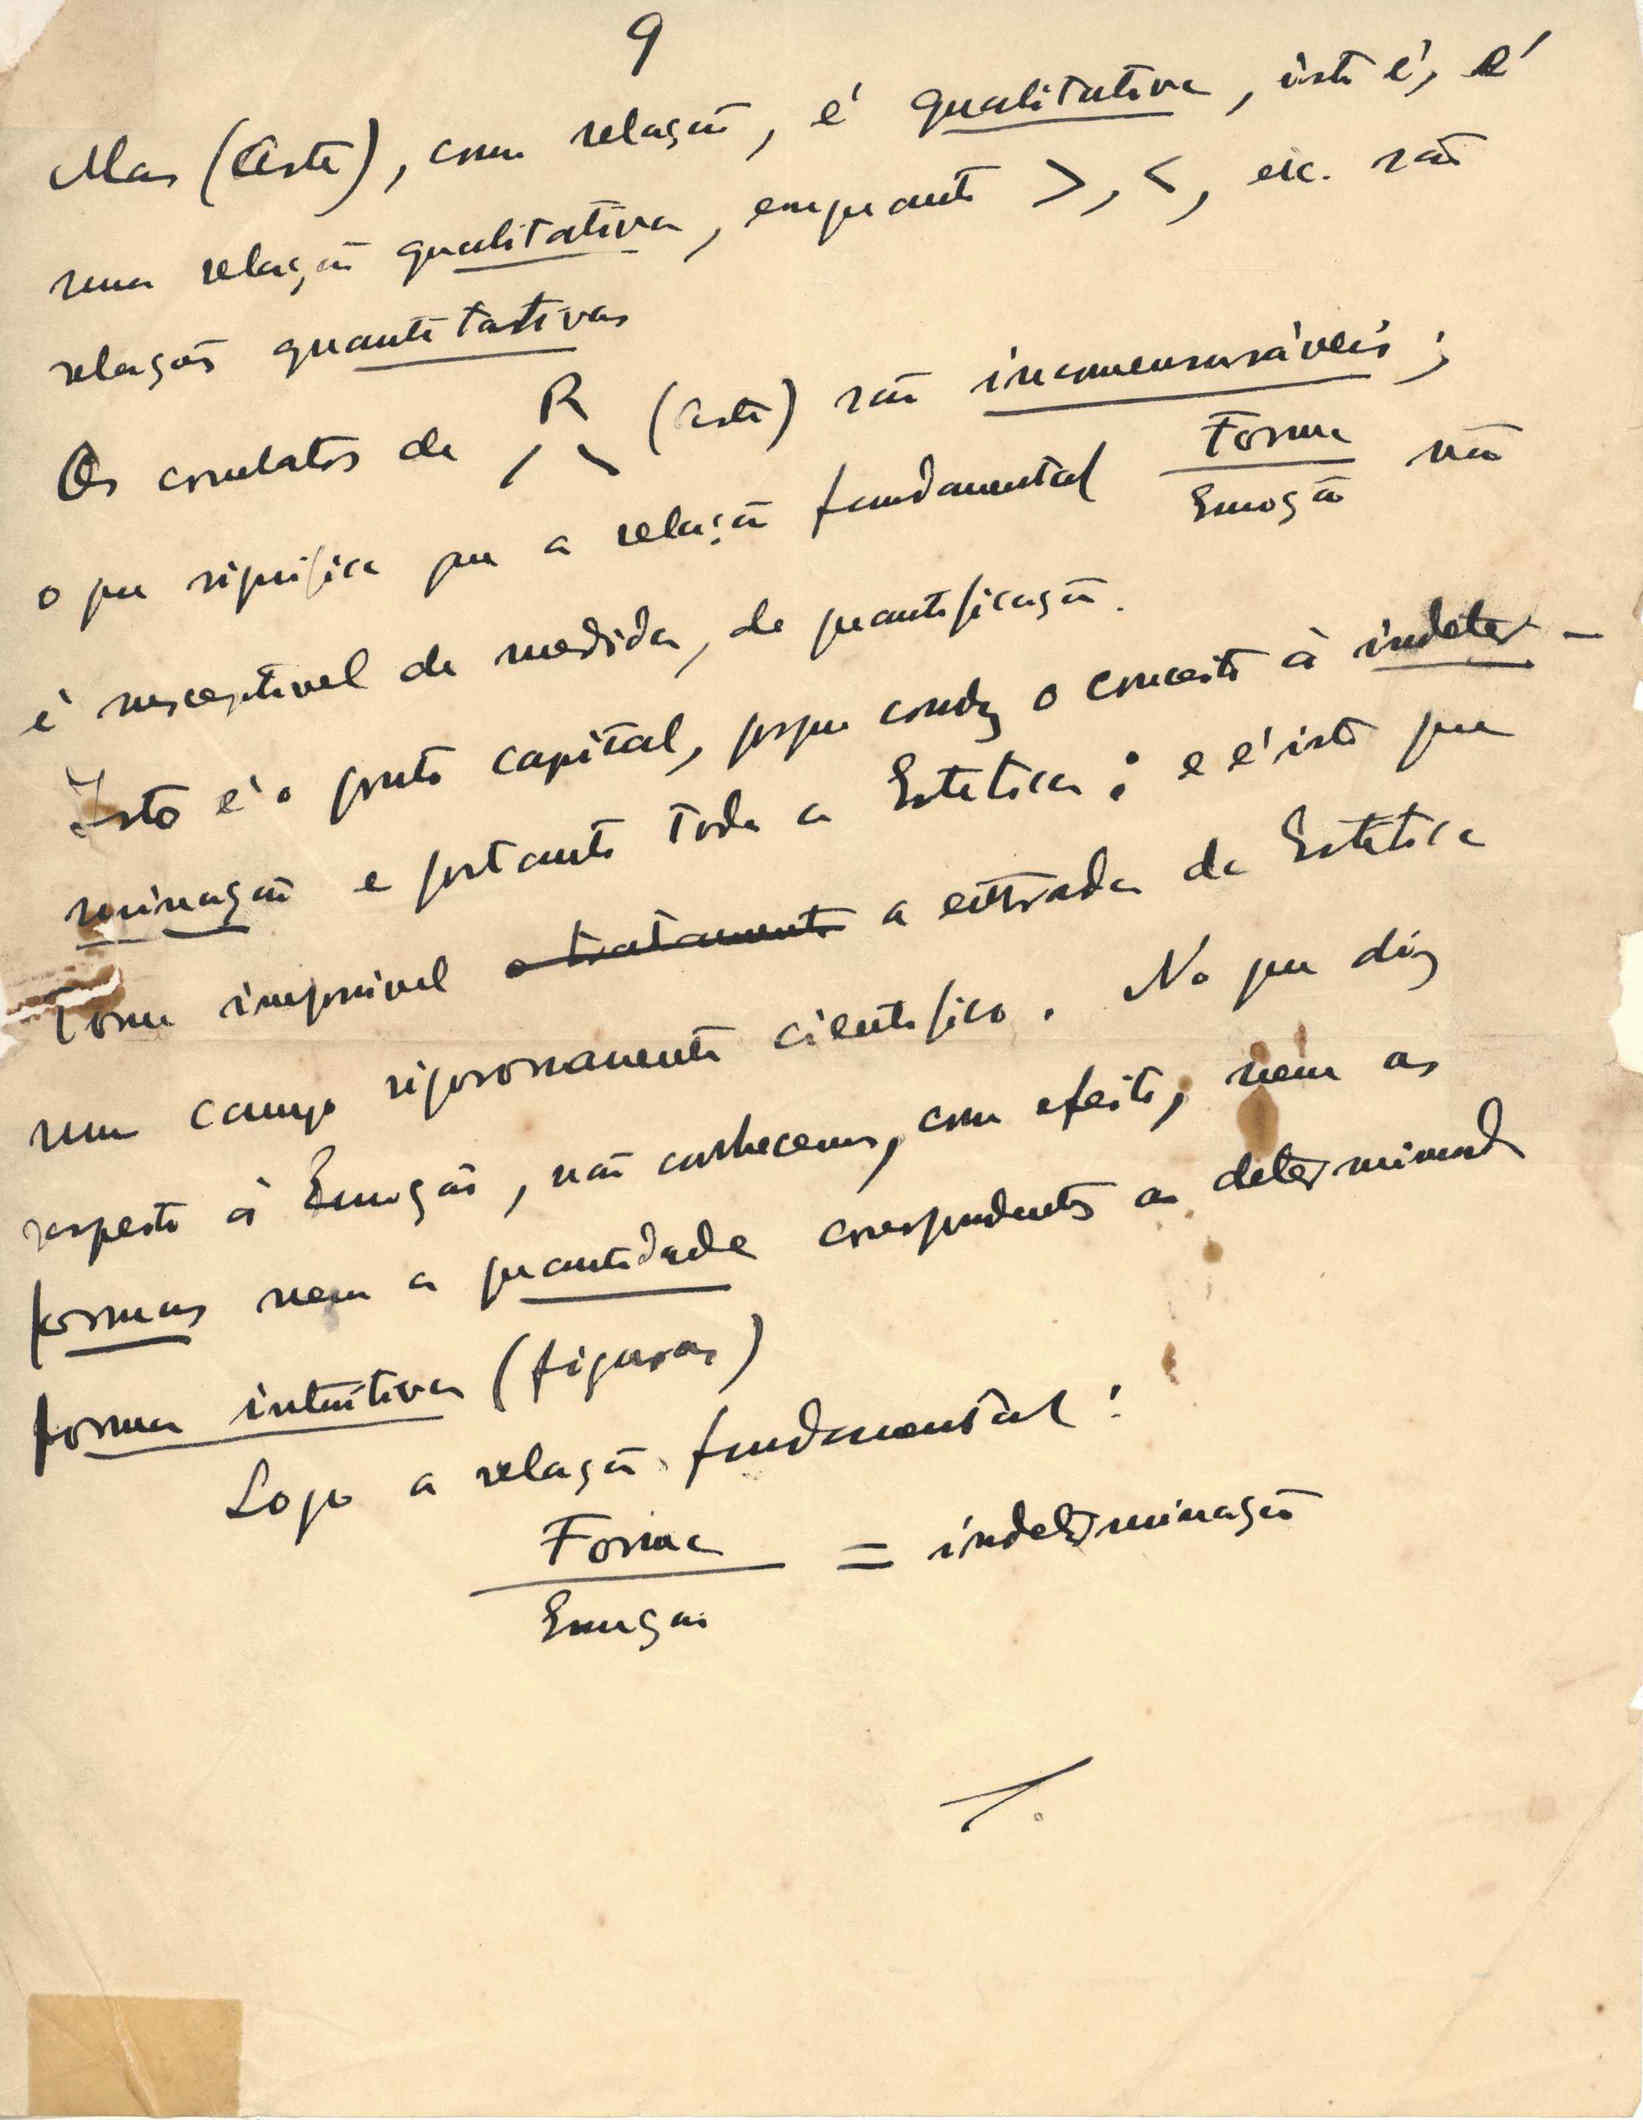 9
Mas (Este), como relação, é qualitativa, isto é, é
uma relação qualitativa, enquanto >, <, etc. são
relações quantitativas
Os correlatos de R (este) são incomensuráveis;
o que significa que a relação fundamental Forma / Emoção não
é susceptível de medida, de quantificação.
Isto é o ponto capital, porque conduz o conceito à indeter-
minação e portanto toda a Estética; e é isto que
torna impossível o tratamento a entrada da Estética
num campo rigorosamente científico. No que diz
respeito à Emoção, não conhecemos, com efeito, nem as
formas nem a quantidade correspondentes a determinada
forma intuitiva (figuras)
Logo a relação fundamental:
Forma / Emoção = indeterminação